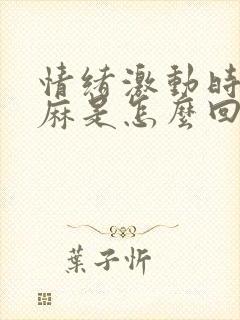 情緒激動時
麻是怎麼回
葉子忻